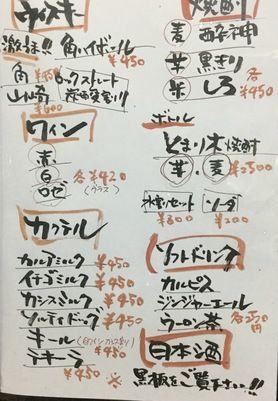 ウィスキー
激推!! 角ハイボール
¥450
角 ¥450 ロック ストレート
山崎 ¥600
ワイン
赤
白 各¥420
ロゼ (グラス)
カクテル
カルアミルク ¥450
イチゴミルク ¥450
カシスミルク ¥450
ソルティドッグ ¥450
キール ¥450
テキーラ ¥450
焼酎
麦
芋 黒きり 各
米 しろ ¥450
ボトル
とまり木焼酎
芋・麦 ¥2500
水割りセット ソーダ
¥600 ¥200
ソフトドリンク
カルピス
ジンジャーエール
ウーロン茶 各250円
日本酒
※黒板をご覧下さい!!